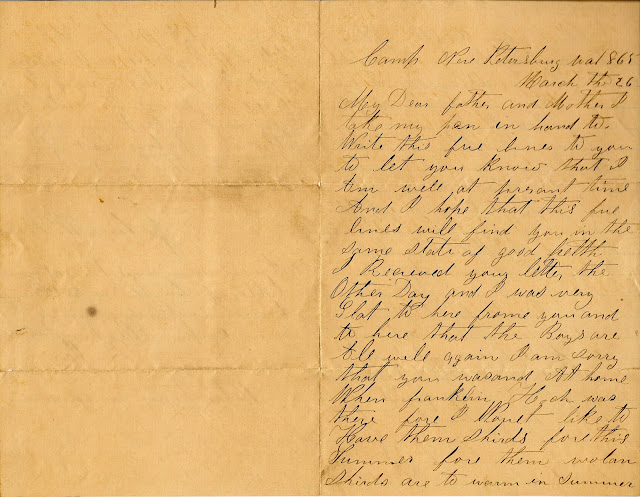 Camp Nere Petersburg va 1865
March the 26
My Dear father and Mother I
take my pen in hand to
Write this fue lines to you
to let you know that I
am well at present time
And I hope that this fue
lines will find you in the
same state of good helth
I Received your letter the
Other Day and I was very
Glat to here frome you and
to here that the Boys are
all well again I am sorry
that you wasand At home
When franklin was
there fore I Wonet like to
Have them shirds fore this
Summer fore them wolan
Shirds are to warm in summer